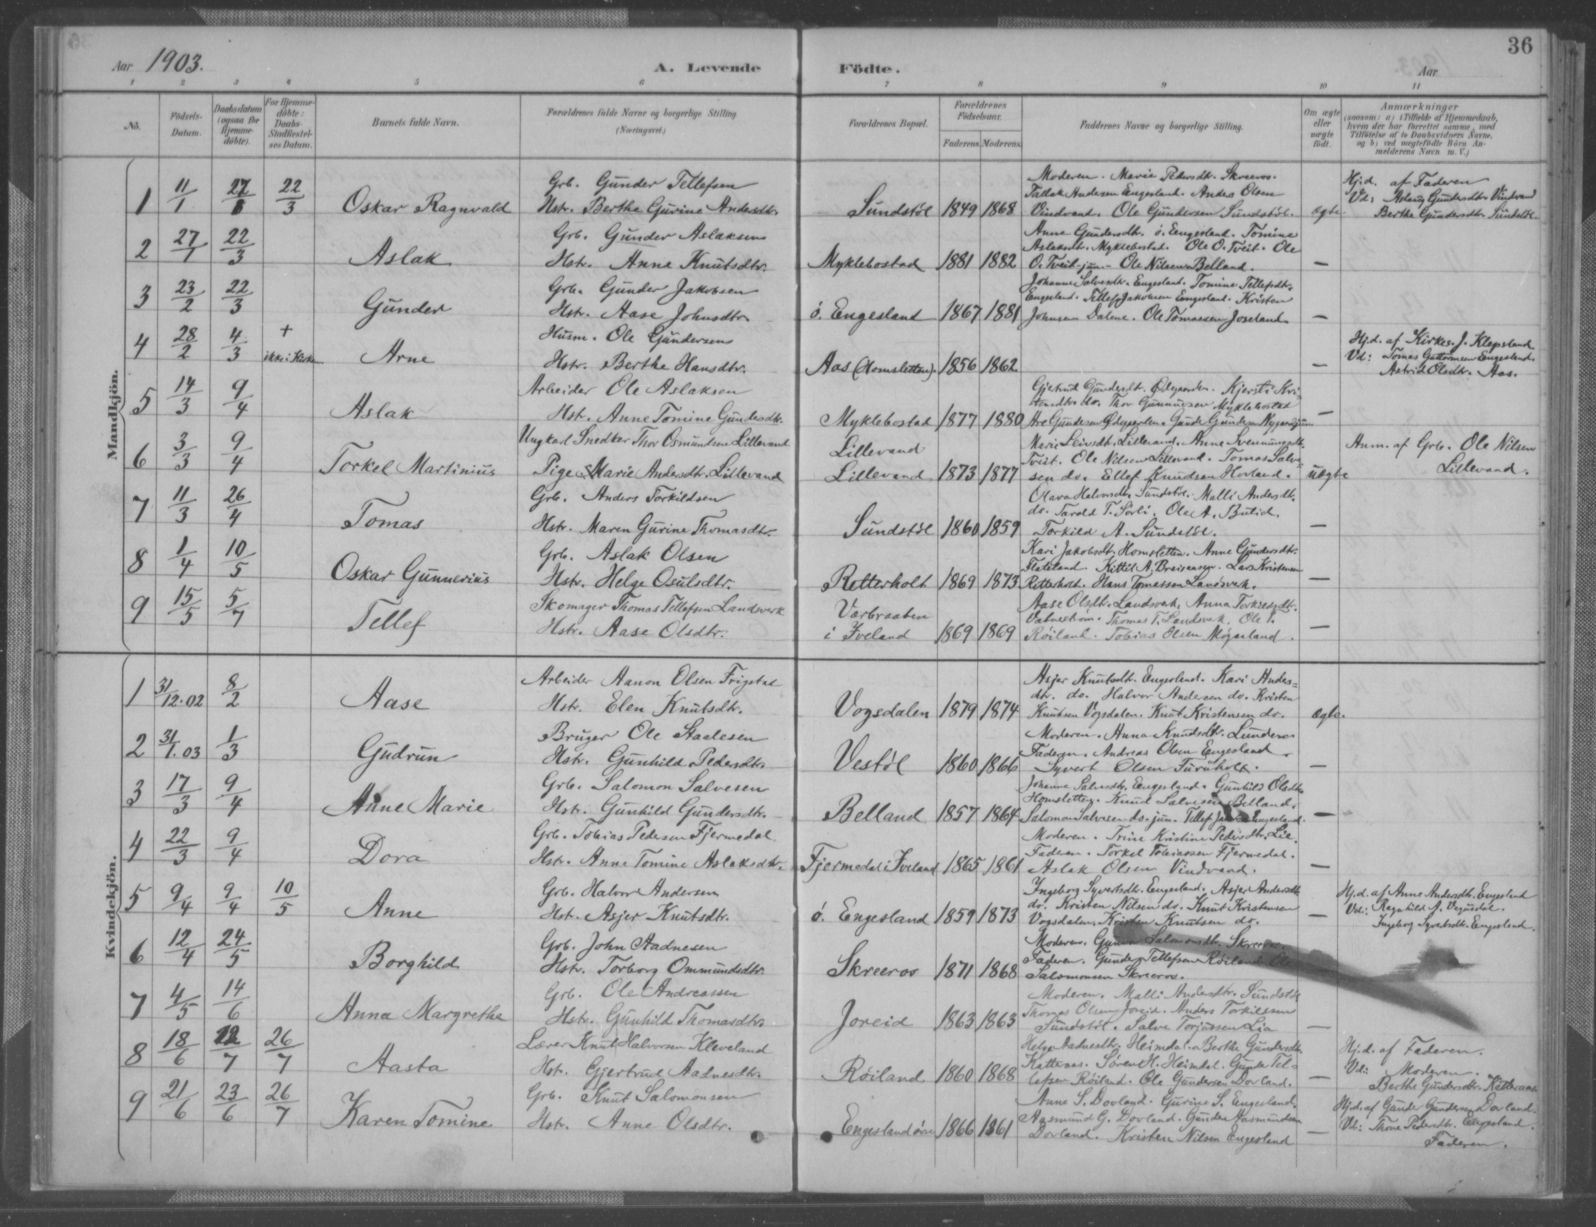 36
Aar 1903.
A. Levende Födte.
Aar
1 2 3 4 5 6 7 8 9 10 11
No.
Födsels-Datum.
Daabsdatum (ogsaa for Hjemme-döbte).
For Hjemme-döbte: Daabs-Stadfæstel-ses Datum.
Barnets fulde Navn.
Forældrenes fulde Navne og borgerlige Stilling (Næringsvei.)
Forældrenes Bopæl.
Forældrenes Födselsaar.
Faderens. Moderens.
Faddernes Navne og borgerlige Stilling.
Om ægte eller uægte födt.
Anmærkninger
(saasom: a) i Tilfælde af Hjemmedaab, hvem der har forrettet samme, med Tilföielse af to Daabsvidners Navne, og b) ved uegtefödte Börn Anmelderens Navn m. V.)
Mandkjön.
1 11/1 27/1 22/3 Oskar Ragnvald
Grb. Gunder Tellefsen
Hstr. Berthe Gurine Andersdtr.
Sundstöl 1849 1868
Moderen. Marie Pedersdtr. Skreeros.
Tallak Andersen Engesland. Anders Olsen
Vindvand. Ole Gundersen Sundstöl. ægte
Hjd. af Faderen
Vd: Aslaug Gundersdtr. Vindvand
Berthe Gundersdtr. Sundstöl
2 27/1 22/3 Aslak
Grb. Gunder Aslaksen
Hstr. Anne Knutsdtr.
Myklebostad 1881 1882
Anne Gundersdtr. ö. Engesland. Tomine
Aslaksdtr. Myklebostad. Ole O. Tveit. Ole
O. Tveit jun. Ole Nilsen Belland. —
3 23/2 22/3 Gunder
Grb. Gunder Jakobsen
Hstr. Aase Johnsdtr.
ö. Engesland 1867 1881
Johanne Salvesdtr. Engesland. Tomine Tellefsdtr.
Engesland. Tellef Jakobsen Engesland. Kristen
Johnsen Dalene. Ole Tomassen Joreland. —
4 28/2 4/3 + ikke i Kirke Arne
Husm. Ole Gundersen
Hstr. Berthe Hansdtr.
Aas (Homsletten). 1856 1862 —
Hjd. af Kirkes. J. Klepsland
Vd: Tomas Guttormsen Engesland.
Astrid Olsdtr. Aas.
5 14/3 9/4 Aslak
Arbeider Ole Aslaksen
Hst. Anne Tomine Gundersdtr.
Myklebostad 1877 1880
Gjertrud Gundersdt. Ödegaarden. Kjersti Kri-
stensdtr. do. Thor Gunnersen Myklebostad
Are Gundersen Ödegaarden. —
6 3/3 9/4 Torkel Martinius
Ungkarl Snedker Thor Osmundsen Lillevand
Pige Marie Andersdtr. Lillevand
Lillevand
Lillevand 1873 1877
Tveit. Ole Nilsen Lillevand. Tomas Salve-
sen do. Ellef Knudsen Hovland. uægte
Anm. af Grb. Ole Nilsen
Lillevand.
7 11/3 26/4 Tomas
Grb. Anders Torkildsen
Hstr. Maren Gurine Thomasdtr.
Sundstöl 1860 1859
Olava Halvorsdtr. Sundstöl. Malli Andersdtr.
do. Tarald T. Sorli. Ole A. Butid.
Torkild A. Sundstöl. —
8 1/4 10/5 Oskar Gunnerius
Grb. Aslak Olsen
Hstr. Helge Osulsdtr.
Retterholt 1869 1873
Kari Jakobsdtr. Homsletten. Anne Gundersdtr.
Flateland. Kittil A. Breiensyn. Lars Kristensen
Retterholt. Hans Tomassen Landsverk. —
9 15/5 5/7 Tellef
Skomager Thomas Tellefsen Landsverk
Hstr. Aase Olsdtr.
Varbraaten
i Iveland 1869 1869
Aase Olsdtr. Landsverk. Anna Torkildsdtr.
Thomas T. Landsverk. Ole T.
Röiland. Tobias Olsen Mögesland. —
Kvindekjön.
1 31/12.02 8/2 Aase
Arbeider Aanon Olsen Frigstad
Hstr. Elen Knutsdtr.
Vogsdalen 1879 1874
Asjer Knutsdt. Engesland. Kari Anders-
dtr. do. Halvor Andersen do. Kristen
Knutsen Vogsdalen. Knut Kristensen do. ægte.
2 31/1.03 1/3 Gudrun
Bruger Ole Staalesen
Hstr. Gunhild Pedersdtr.
Vestöl 1860 1866
Moderen. Anna Knudsdtr. Lunderos
Faderen. Andreas Olsen Engesland.
Syvert Olsen Furuholt. —
3 17/3 9/4 Anne Marie
Grb. Salomon Salvesen
Hstr. Gunhild Gundersdtr.
Belland 1857 1864
Johanne Salvesdtr. Engesland. Gunhild Olsdtr.
Homsletten. Knud Salvesen Belland.
Salomon Salvesen do. jun. Tellef Jakobsen Engesland. —
4 22/3 9/4 Dora
Grb. Tobias Pedersen Fjermedal
Hstr. Anne Tomine Aslaksdtr.
Fjermedal i Iveland 1865 1861
Moderen. Trine Kristine Pedersdtr. Lie.
Faderen. Torkel Tobiassen Fjermedal.
Aslak Olsen Vindvand. —
5 9/4 9/4 10/5 Anne
Grb. Halvor Andersen
Hst. Asjer Knutsdtr.
ö. Engesland 1859 1873
Ingeborg Syvertsdt. Engesland. Asjer Andersdtr
do. Kristen Nilsen do. Knut Kristensen
Vogsdalen. Kristen Knutsen do. —
Hjd. af Anne Andersdtr. Engesland
Vd: Ragnhild J. Vegusdal.
Ingeborg Syvertsdt. Engesland.
6 12/4 24/5 Borghild
Grb. John Aadnesen
Hstr. Torborg Ommundsdtr.
Skreeros 1871 1868
Moderen. Gunvor Salomonsdtr. Skreeros.
Faderen. Gunder Tellefsen Röiland. Ole
Salomonsen Skreeros.
7 4/5 14/6 Anna Margrethe
Grb. Ole Andreassen
Hstr. Gunhild Thomasdtr.
Joreid 1863 1863
Moderen. Malli Andersdtr. Sundstöl
Thomas Olsen Joreid. Anders Torkildsen
Sundstöl. Salve Torjussen Lia —
8 18/6 12/7 26/7 Aasta
Lærer Knut Halvorsen Kleveland
Hst. Gjertrud Aadnesdtr.
Röiland 1860 1868
Helge Aadnesdtr. Heimdal. Berthe Gundersdtr.
Katteraas. Sören H. Heimdal. Gunder Tel-
lefsen Röiland. Ole Gundersen Dovland. —
Hjd. af Faderen.
Vd: Moderen.
Berthe Gundersdtr. Katteraas
9 21/6 23/6 26/7 Karen Tomine
Grb. Knut Salomonsen
Hstr. Anne Olsdtr.
Engesland övre 1866 1861
Anne S. Dovland. Gurine S. Engesland.
Aasmund G. Dovland. Gunder Aasmundsen
Dovland. Kristen Nilsen Engesland —
Hjd. af Gunder Gundersen Dovland.
Vd: Thone Pedersdt. Engesland.
Faderen.